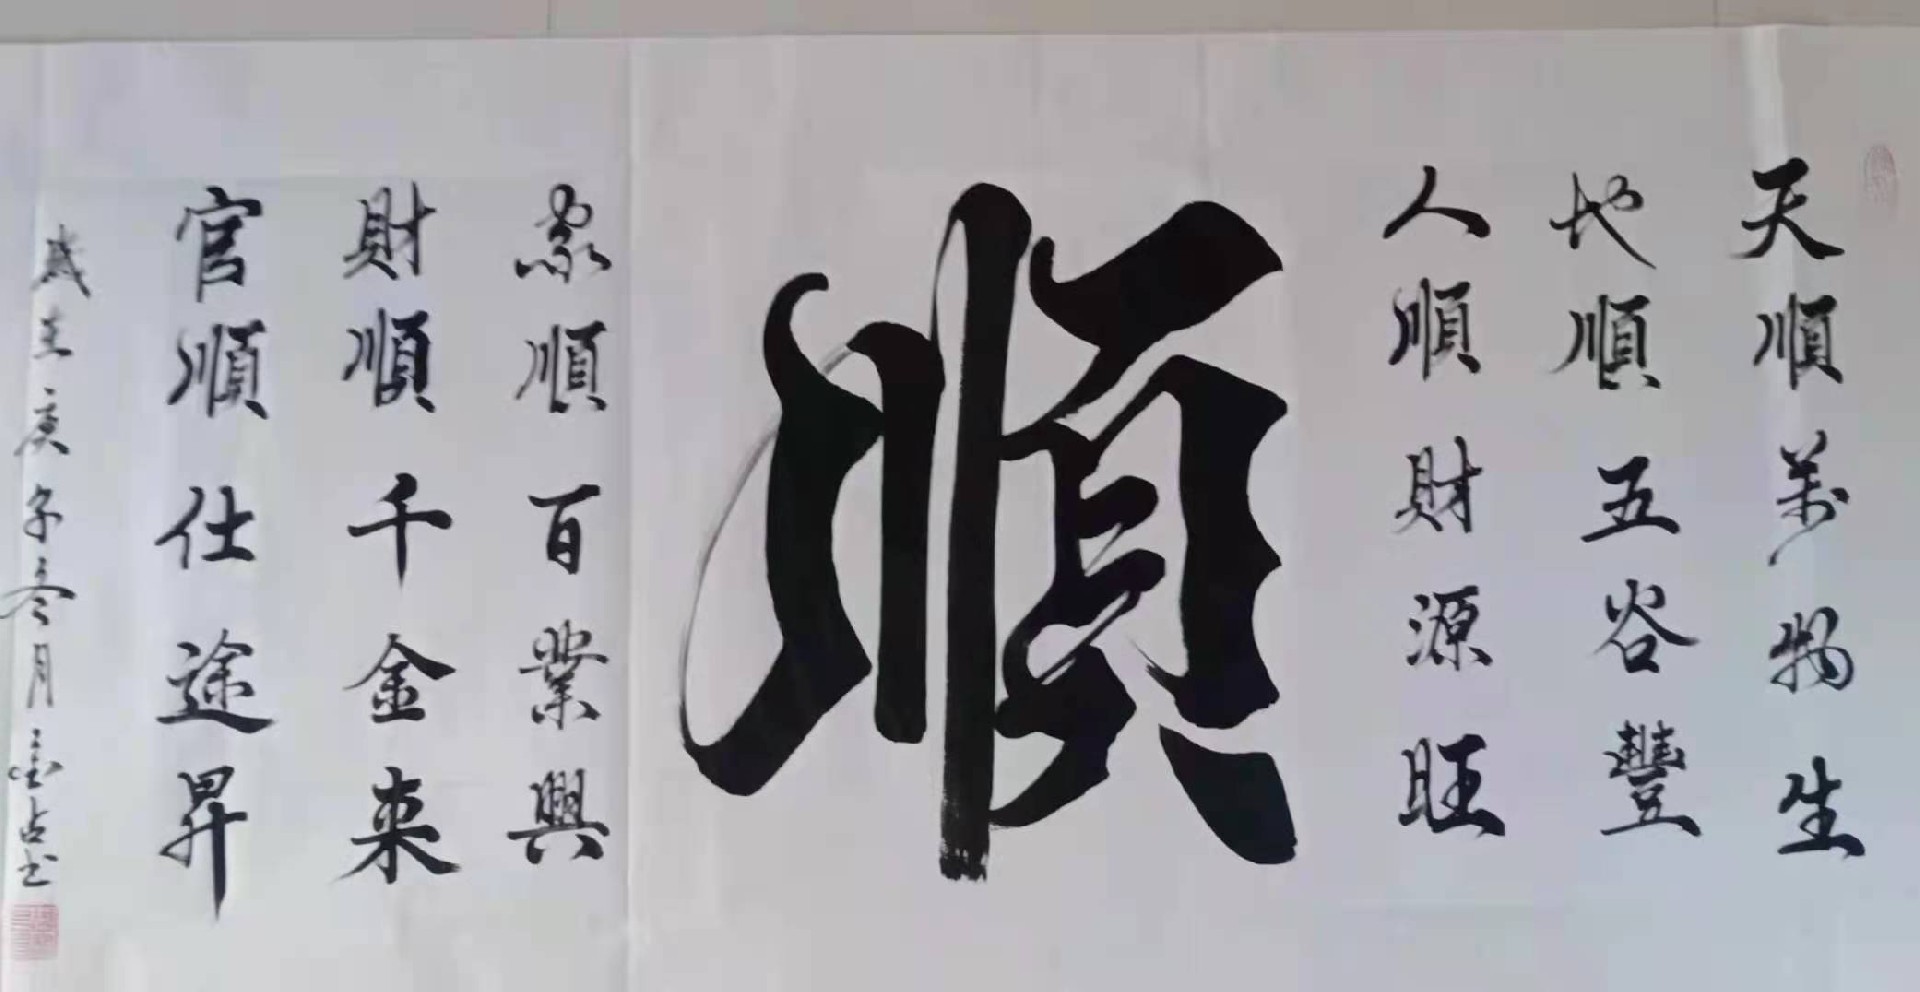 天順萬物生
地順五谷豐
人順財源旺
順
家順百業興
財順千金来
官順仕途昇
歲在庚子冬月金占书